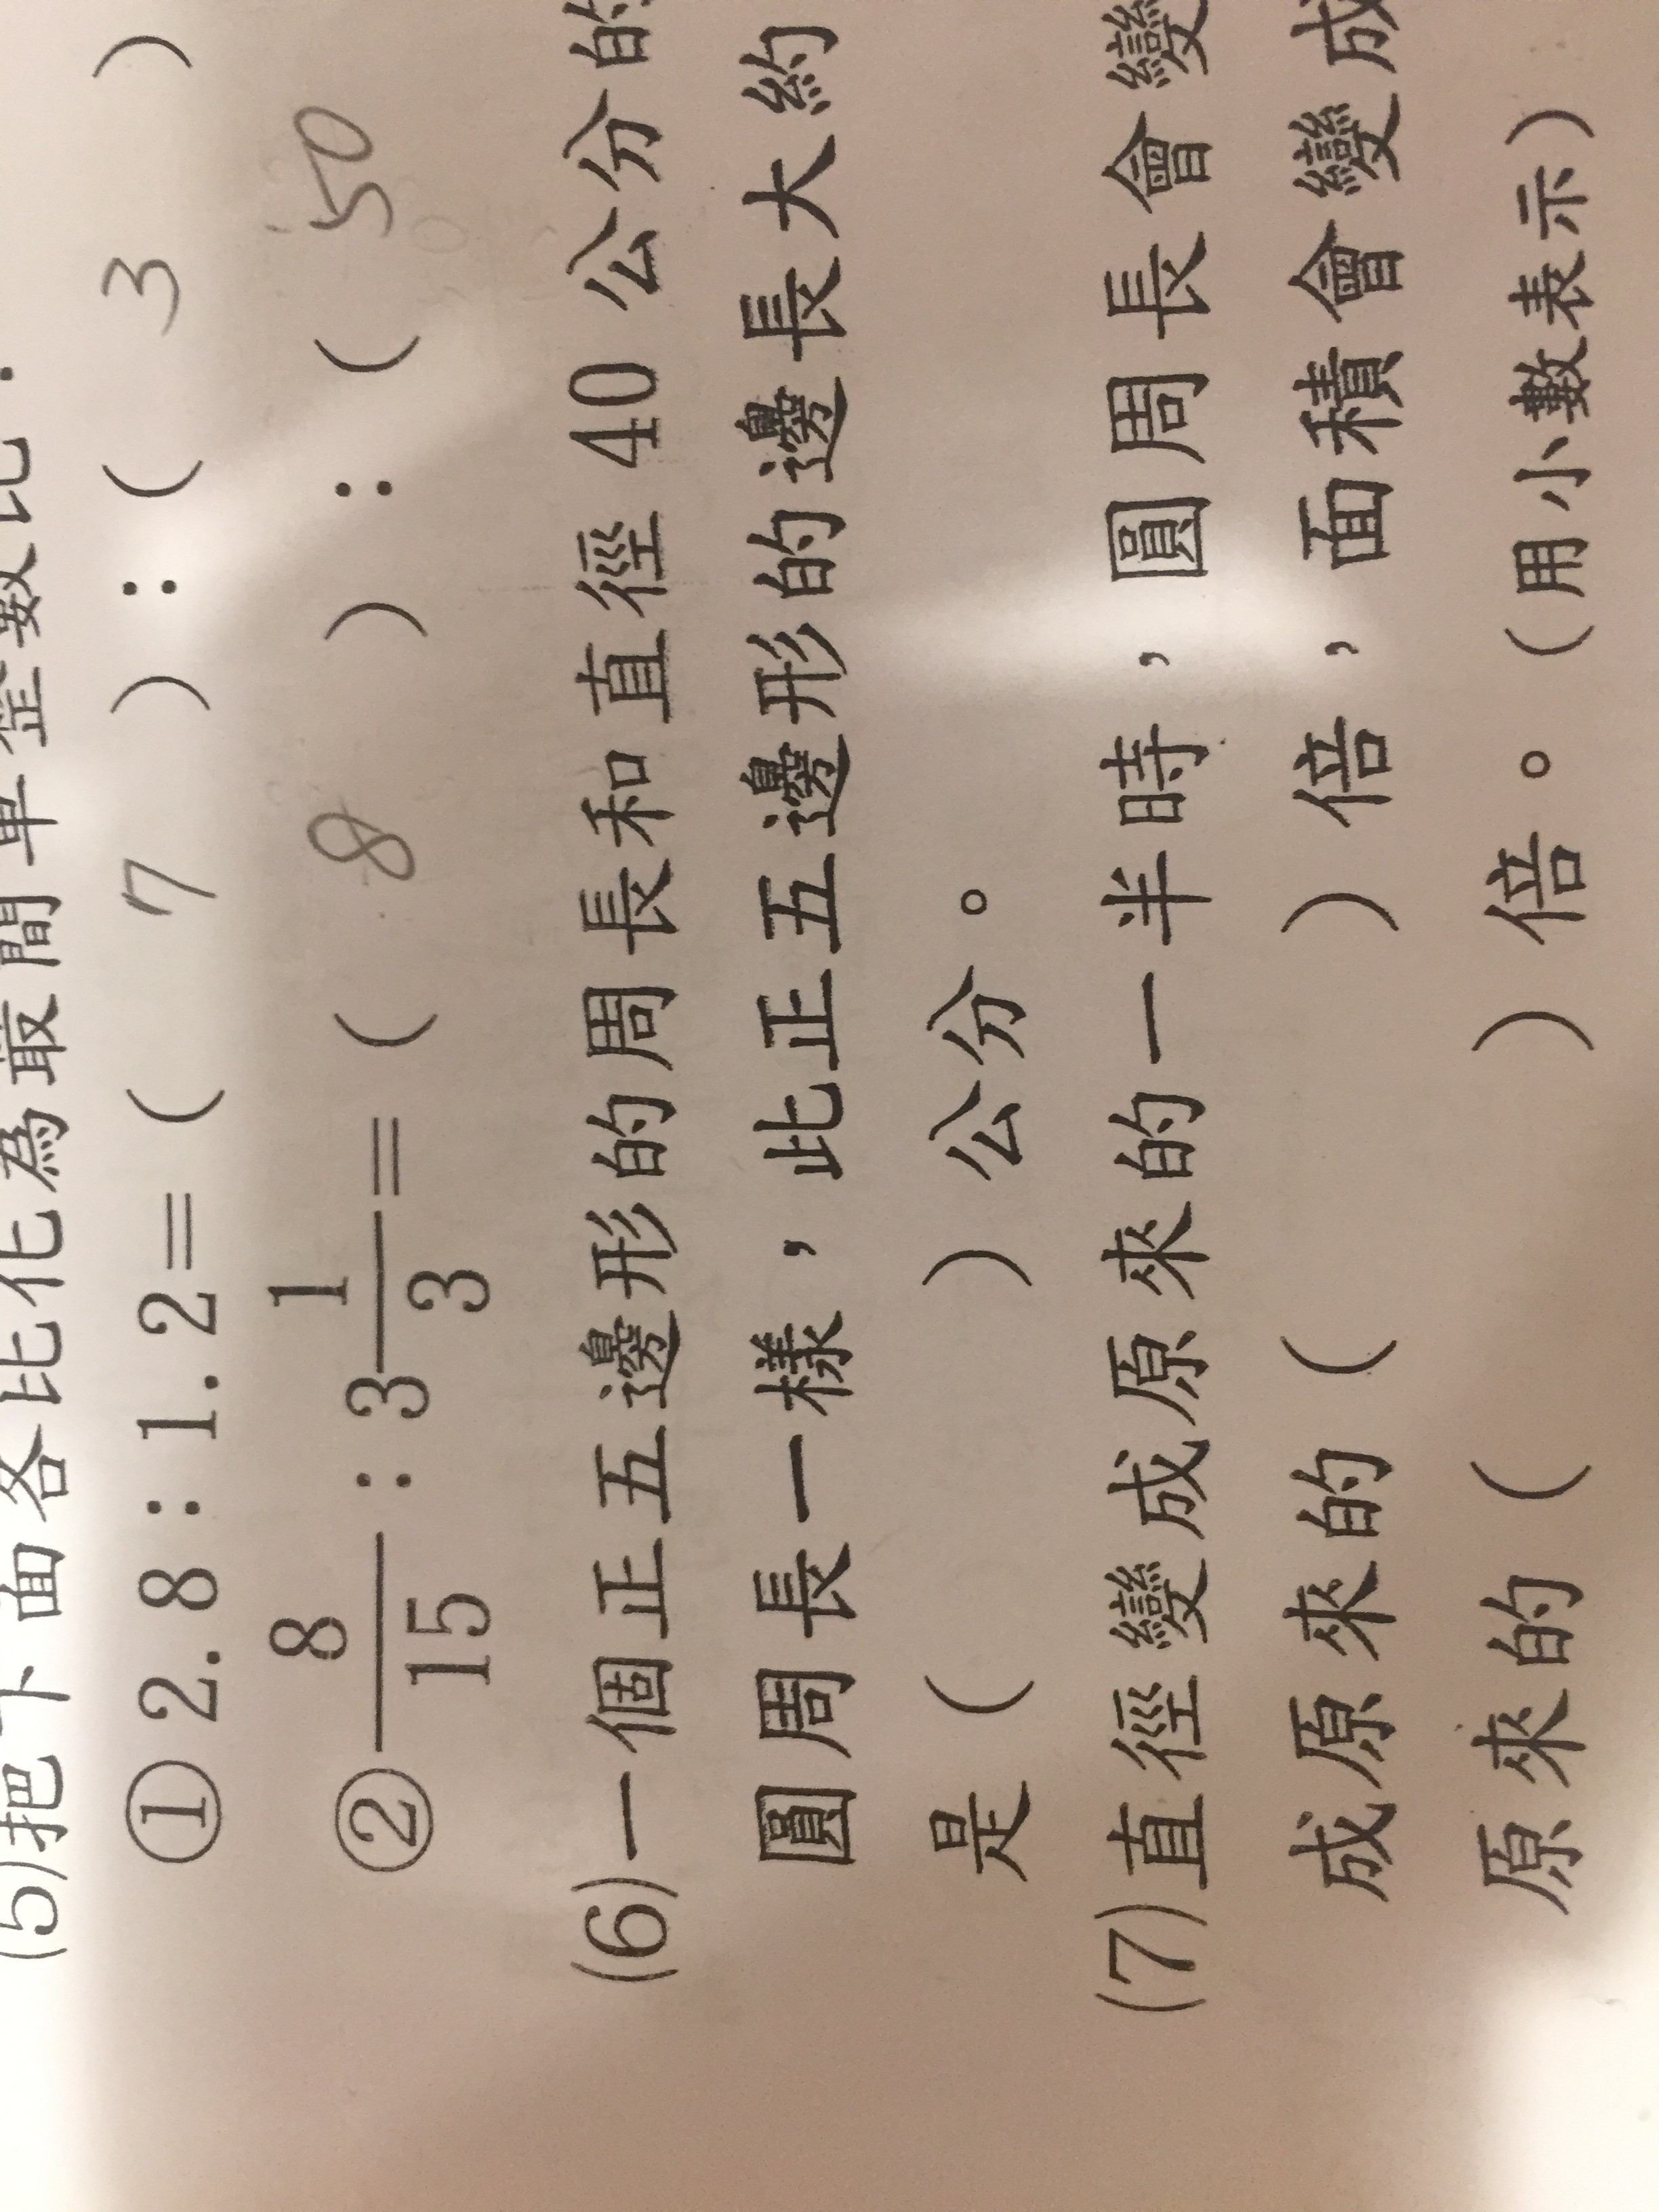 (5)把下面各比化為最簡單整數比：
①2.8：1.2=( 7 )：( 3 )
②8/15：3 1/3=( 8 )：( 50
(6)一個正五邊形的周長和直徑 40 公分的
圓周長一樣，此正五邊形的邊長大約
是( )公分。
(7)直徑變成原來的一半時，圓周長會變
成原來的( )倍，面積會變成
原來的( )倍。(用小數表示)